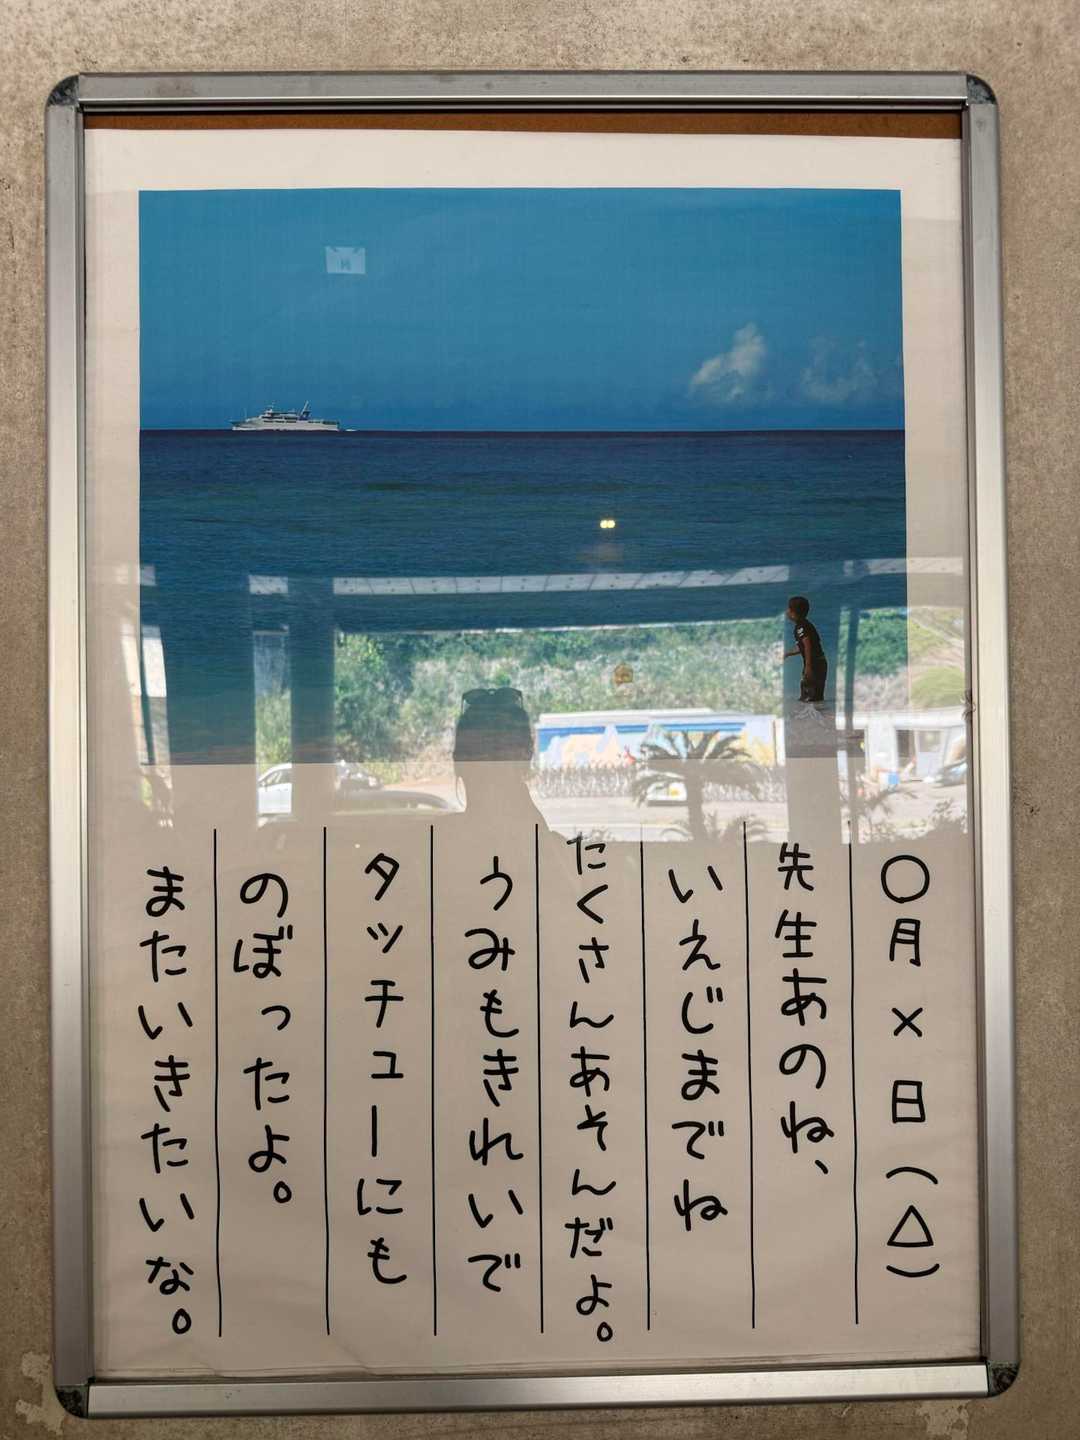 〇月×日(△)
先生あのね、
いえじまでね
たくさんあそんだよ。
うみもきれいで
タッチューにも
のぼったよ。
またいきたいな。